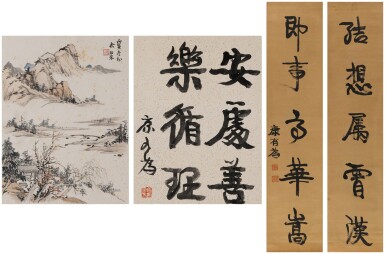 安處善
樂循理
康有為
結想屬霄漢
即事高華嵩
康有為